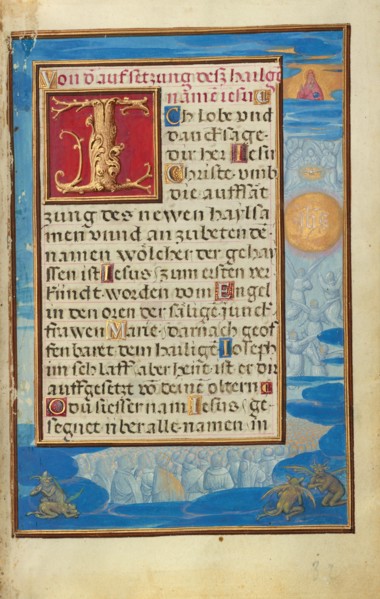 Von d̄ aufsetzung desz hailgē
namē iesu
ICh lobe vnd
danck sage
dir her Iesu
Christe vmb
die auffsat
zung des newen haylsa
men vnnd an zu betendē
namen wölcher der gehay
ssen ist Iesus zum ersten ver
kundt worden vom Engel
in den oren der sälige junck
frawen Marie darnach geof
fenbaret dem hailigē Joseph
im schlaff aber heut ist er dir
auffgesetzt vō deinē oltern
O du siesser nam Iesus ge
segnet vber alle namen in